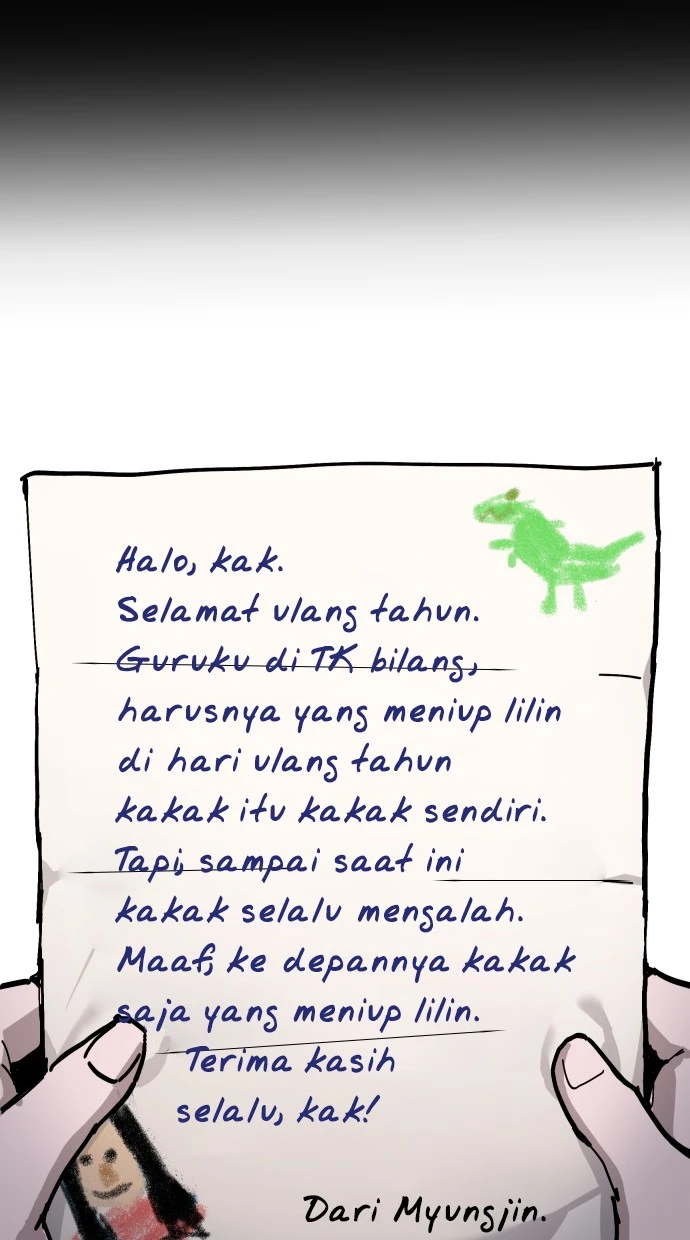 Halo, kak.
Selamat ulang tahun.
Guruku di TK bilang,
harusnya yang meniup lilin
di hari ulang tahun
kakak itu kakak sendiri.
Tapi, sampai saat ini
kakak selalu mengalah.
Maaf, ke depannya kakak
saja yang meniup lilin.
Terima kasih
selalu, kak!
Dari Myungjin.